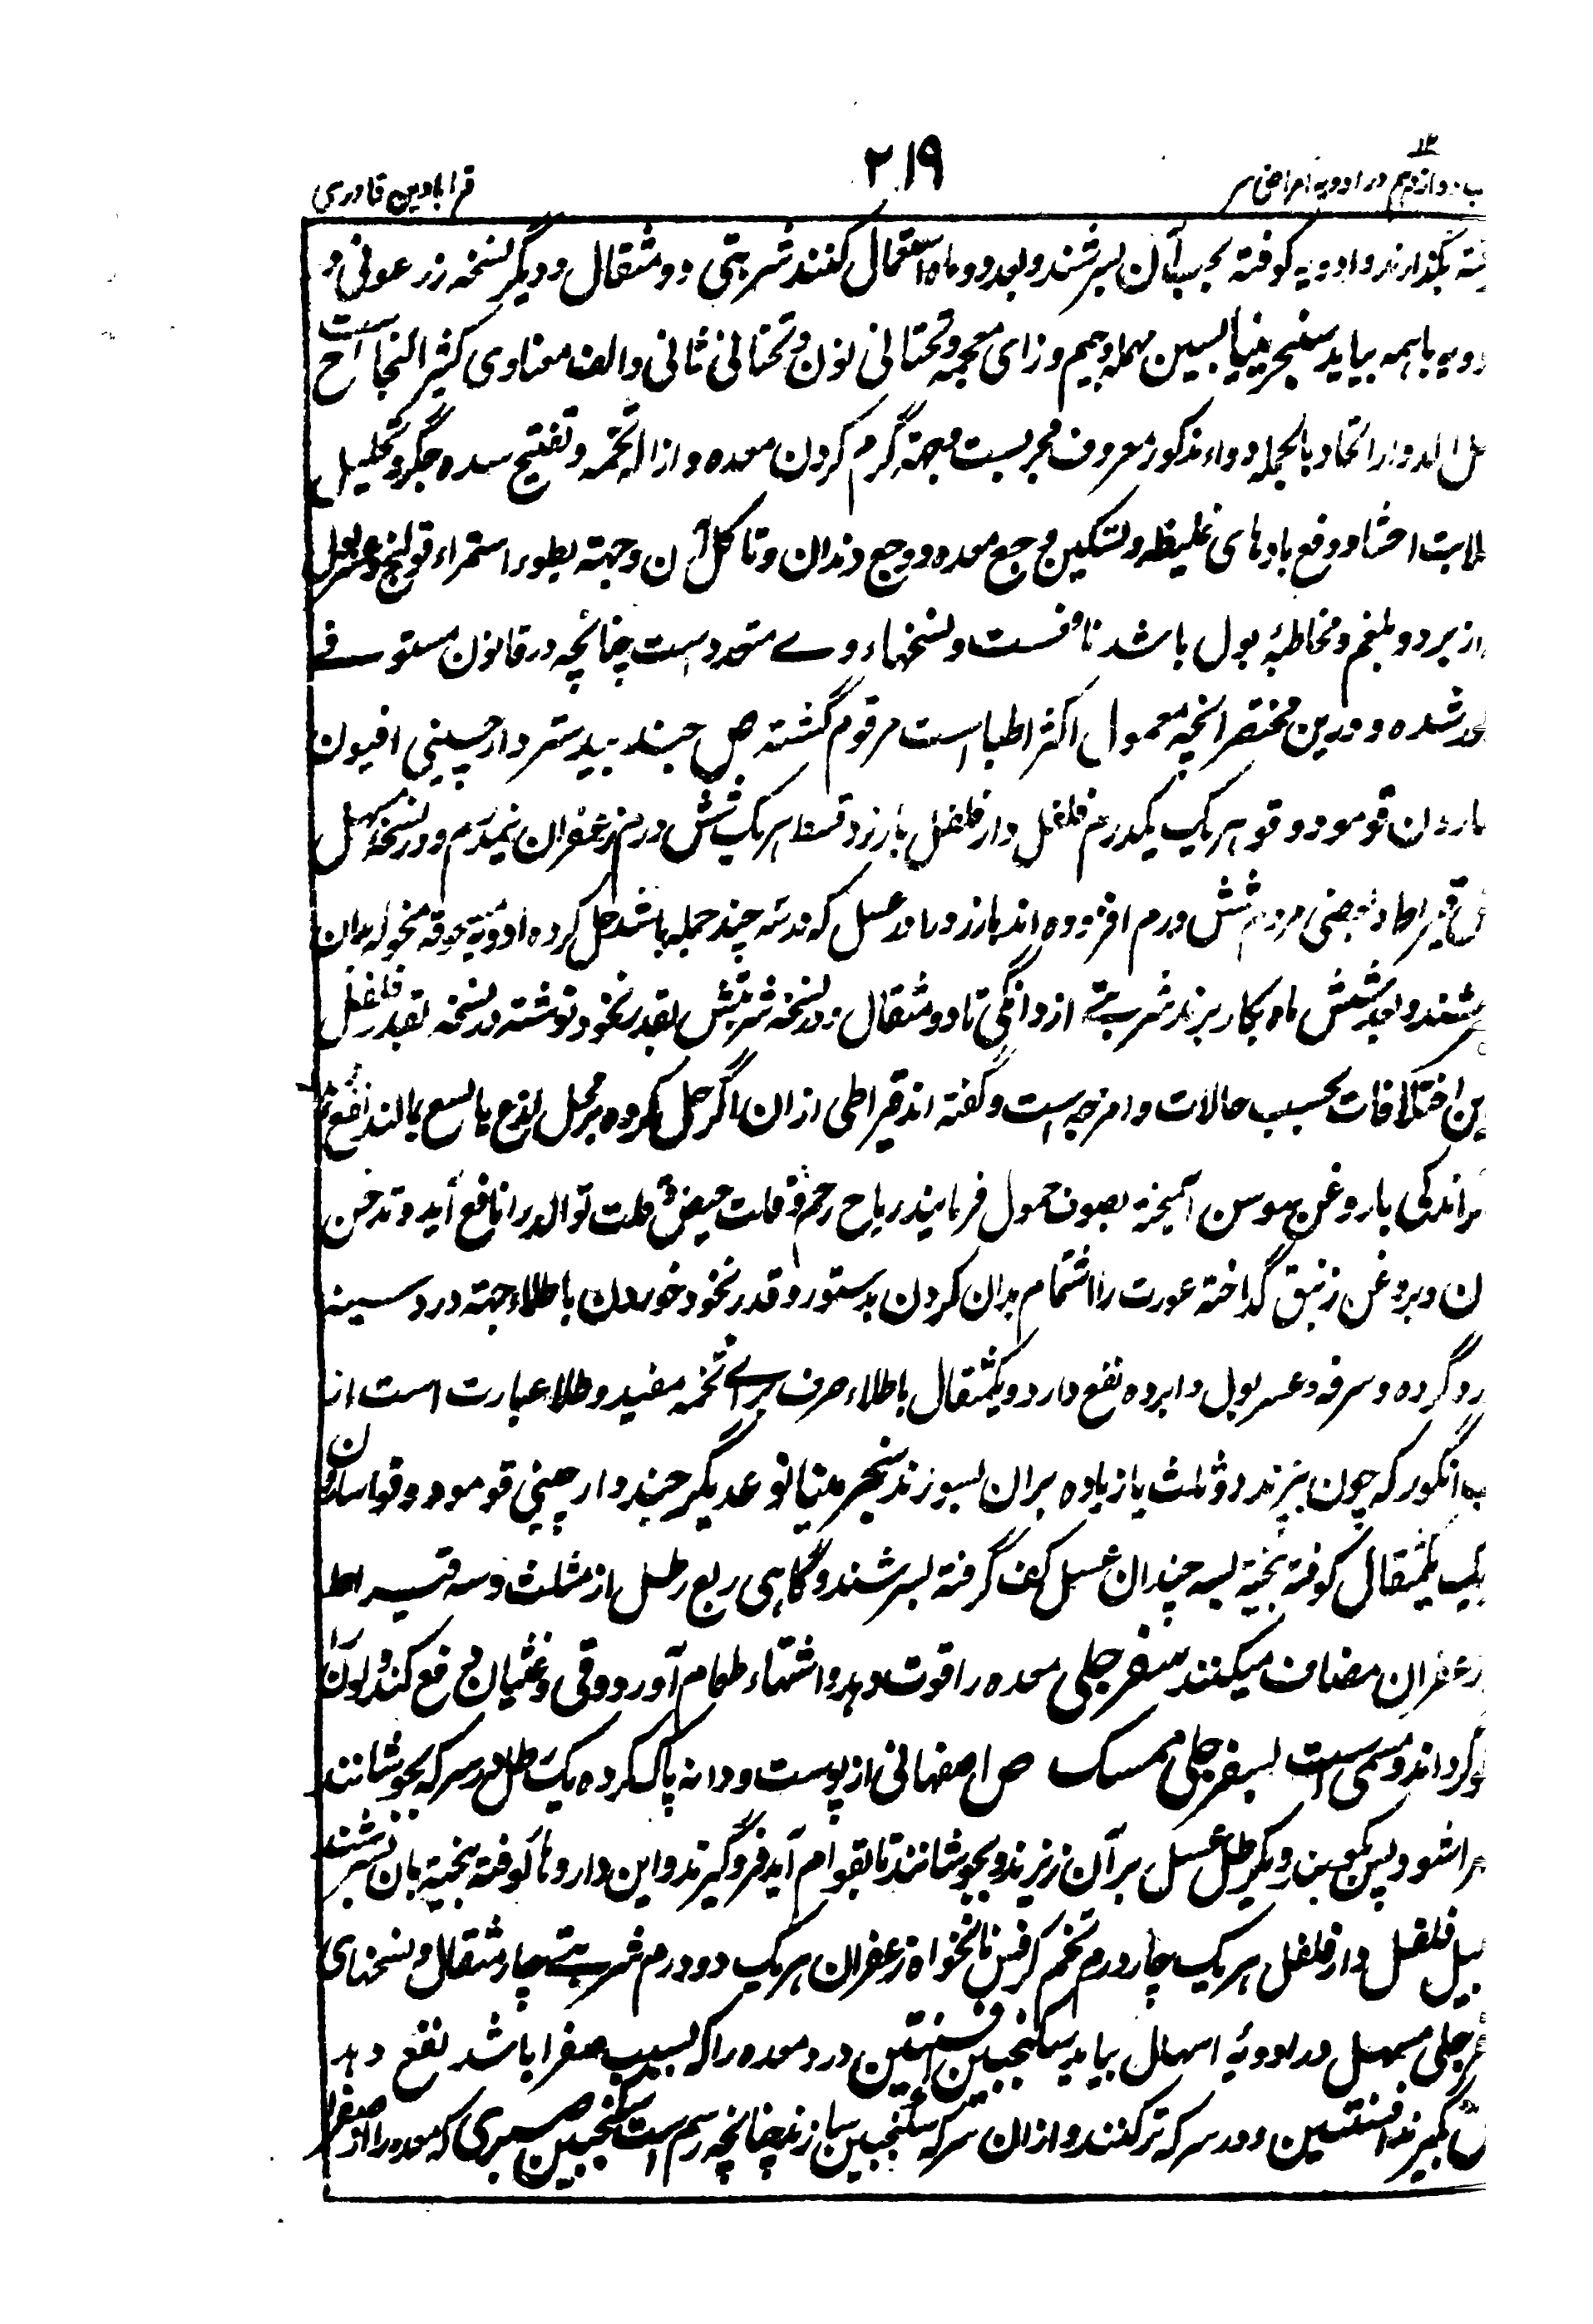 دوازدهم در ادویه امراض سر ۲۱۹ قرابادین قادری
بگذارند و ادویه کوفته بحسب آن بسرشند و بعد دو ماه استعمال کنند شربتی دو مثقال و دیگر نسخه زرعونی در
باسهه بیاید سنجرینیا بسین مهمله و جیم و زای معجمه و تحتانی نون و تحتانی ثانی و الف معناوی کثیر النجاح است
الدوا را اتحاد بالجمله دواء مذکور معروف مجربست و جهة گرم کردن معده و ازاله تخمه و تفتیح سده جگر و تحلیل
احشا و دفع بادهای غلیظه و تسکین وجع معده و وجع دندان و تاکل آن و جهته بطوء استمراء قولنج و عسر بول
از برد و بلغم و مخاطیه بول باشد نافست و نسخهاء وے متعدد است چنانچه در قانون مستوفے
شده و درین مختصر انچه معمول اکثر اطبا است مرقوم گشته ص جند بیدستر دارچینی افیون
اسارون قو مو دوقو هریک یکدرم فلفل دارفلفل بارزد قسط هریک شش درم زعفران نیمدرم و در نسخه کهل
قیراط و بعضی مردم شش درم افزوده اند بارزد را در عسل که دسته چند جمله باشد حل کرده ادویه مدقوقه منخوله بدان
بسرشند و بعد شش ماه بکار برند شربتے از دانگی تا دو مثقال و در نسخه شربتش بقدر نخود نوشته در نسخه بقدر فلفل
این اختلافات بحسب حالات و امزجه است و گفته اند قیراطی ازان اگر حل کرده بر محل لذع یا لسع بمالند نافع
اندکی با روغن سوسن آمیخته بصوف حمول فرمایند ریاح رحم و قلت حیض و قلت توالد را نافع آید و تدخین
آن و بروغن زنبق گداخته عورت را اشتمام بدان کردن بدستور و قدر نخود خوردن با طلاء جهته درد سینه
درد گرده و سرفه و عسر بول و ابرده نفع دارد و یکمثقال با طلاء صرف برائے تخمه مفید و طلا عبارت است از
آب انگور که چون بپزند دو ثلث یا زیاده بران بسوزند سنجرینیا نوع دیگر جند دارچینی قو مو دوقو اسارون
هریک یکمثقال کوفته بیخته بسه چندان عسل کف گرفته بسرشند و گاهی ربع رطل از مثلث و سه قیراط
زعفران مضاف میکنند سفرجلی معده را قوت دهد و اشتهاء طعام آورد و قی و غثیان دفع کند و لون
نیکو گرداند و مسمی است بسفرجلی ممسک ص اصفهانی از پوست و دانه پاک کرده یک رطل در سرکه بجوشانند
مهرا شود پس بکوبند و یکرطل عسل بر آن ریزند و بجوشانند تا بقوام آید فرو گیرند و این داروها کوفته بیخته بان بسرشند
زنجبیل فلفل دارفلفل هریک چاردرم تخم کرفس نانخواه زعفران هریک دو درم شربتے چار مثقال و نسخهای
سفرجلی مسهل در ادویهٔ اسهال بیاید سکنجبین افسنتین درد معده را که بسبب صفرا باشد نفع دهد
ص بگیرند افسنتین و در سرکه تر کنند و ازان سرکه سکنجبین سازند چنانچه رسم است سکنجبین صبری که معده را از صفرا